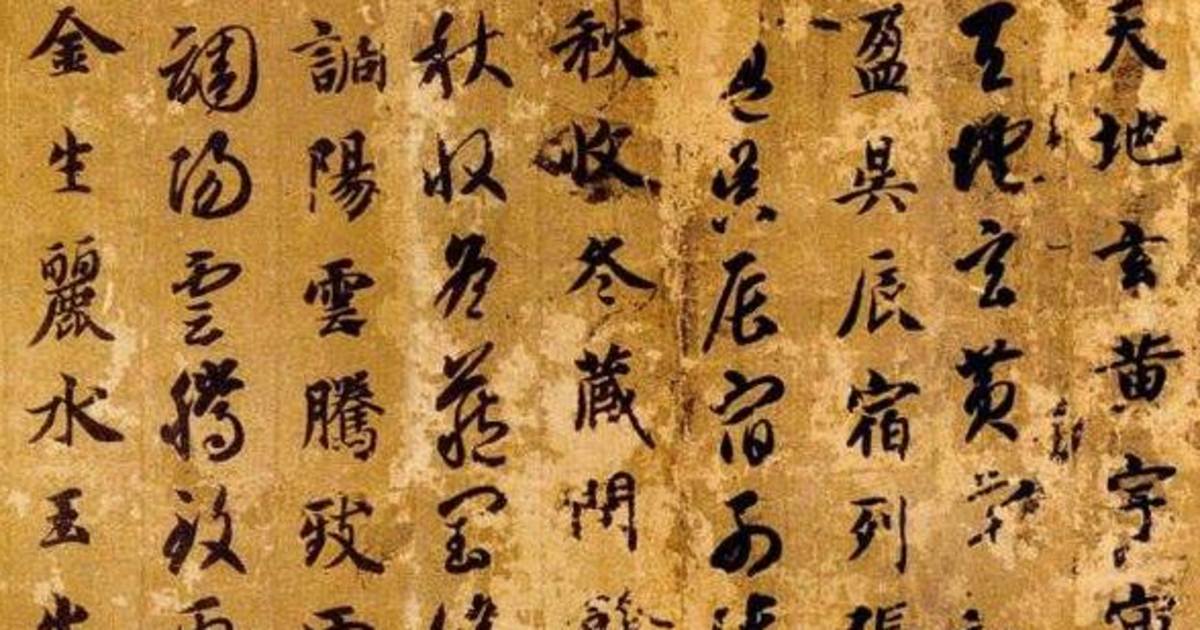 天地玄黄宇
天地玄黄
盈昃辰宿列張
盈昃辰宿列張
秋收冬藏閏
秋收冬藏閏
調陽雲騰致雨
調陽雲騰致雨
金生麗水玉出